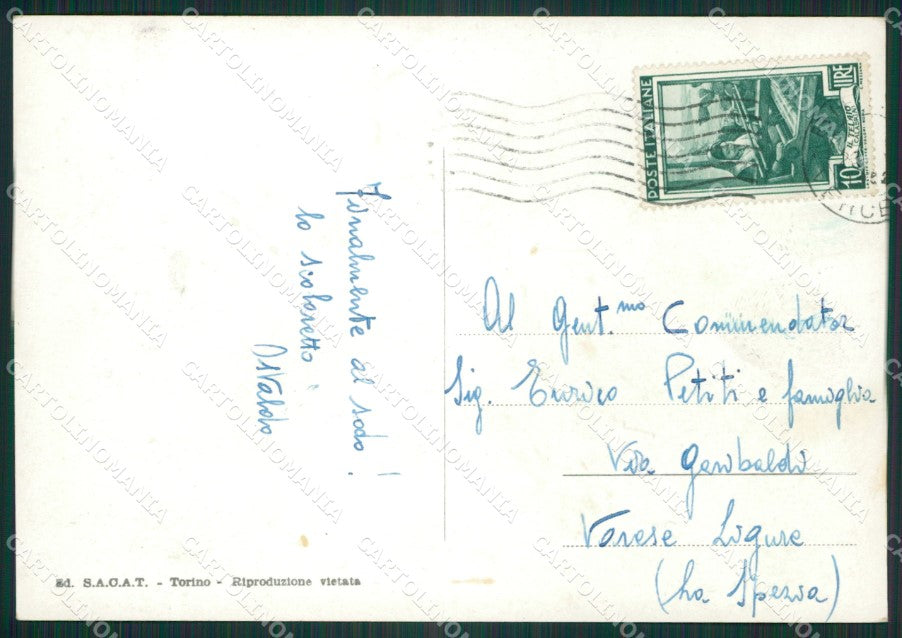 Finalmente al sodo!
lo scolaretto
Osvaldo
Ed. S.A.C.A.T. - Torino - Riproduzione vietata
POSTE ITALIANE
LIRE
10
Al Gent.mo Commendator
Sig. Enrico Petiti e famiglia
Via Garibaldi
Varese Ligure
(La Spezia)
CARTOLINOMANIA